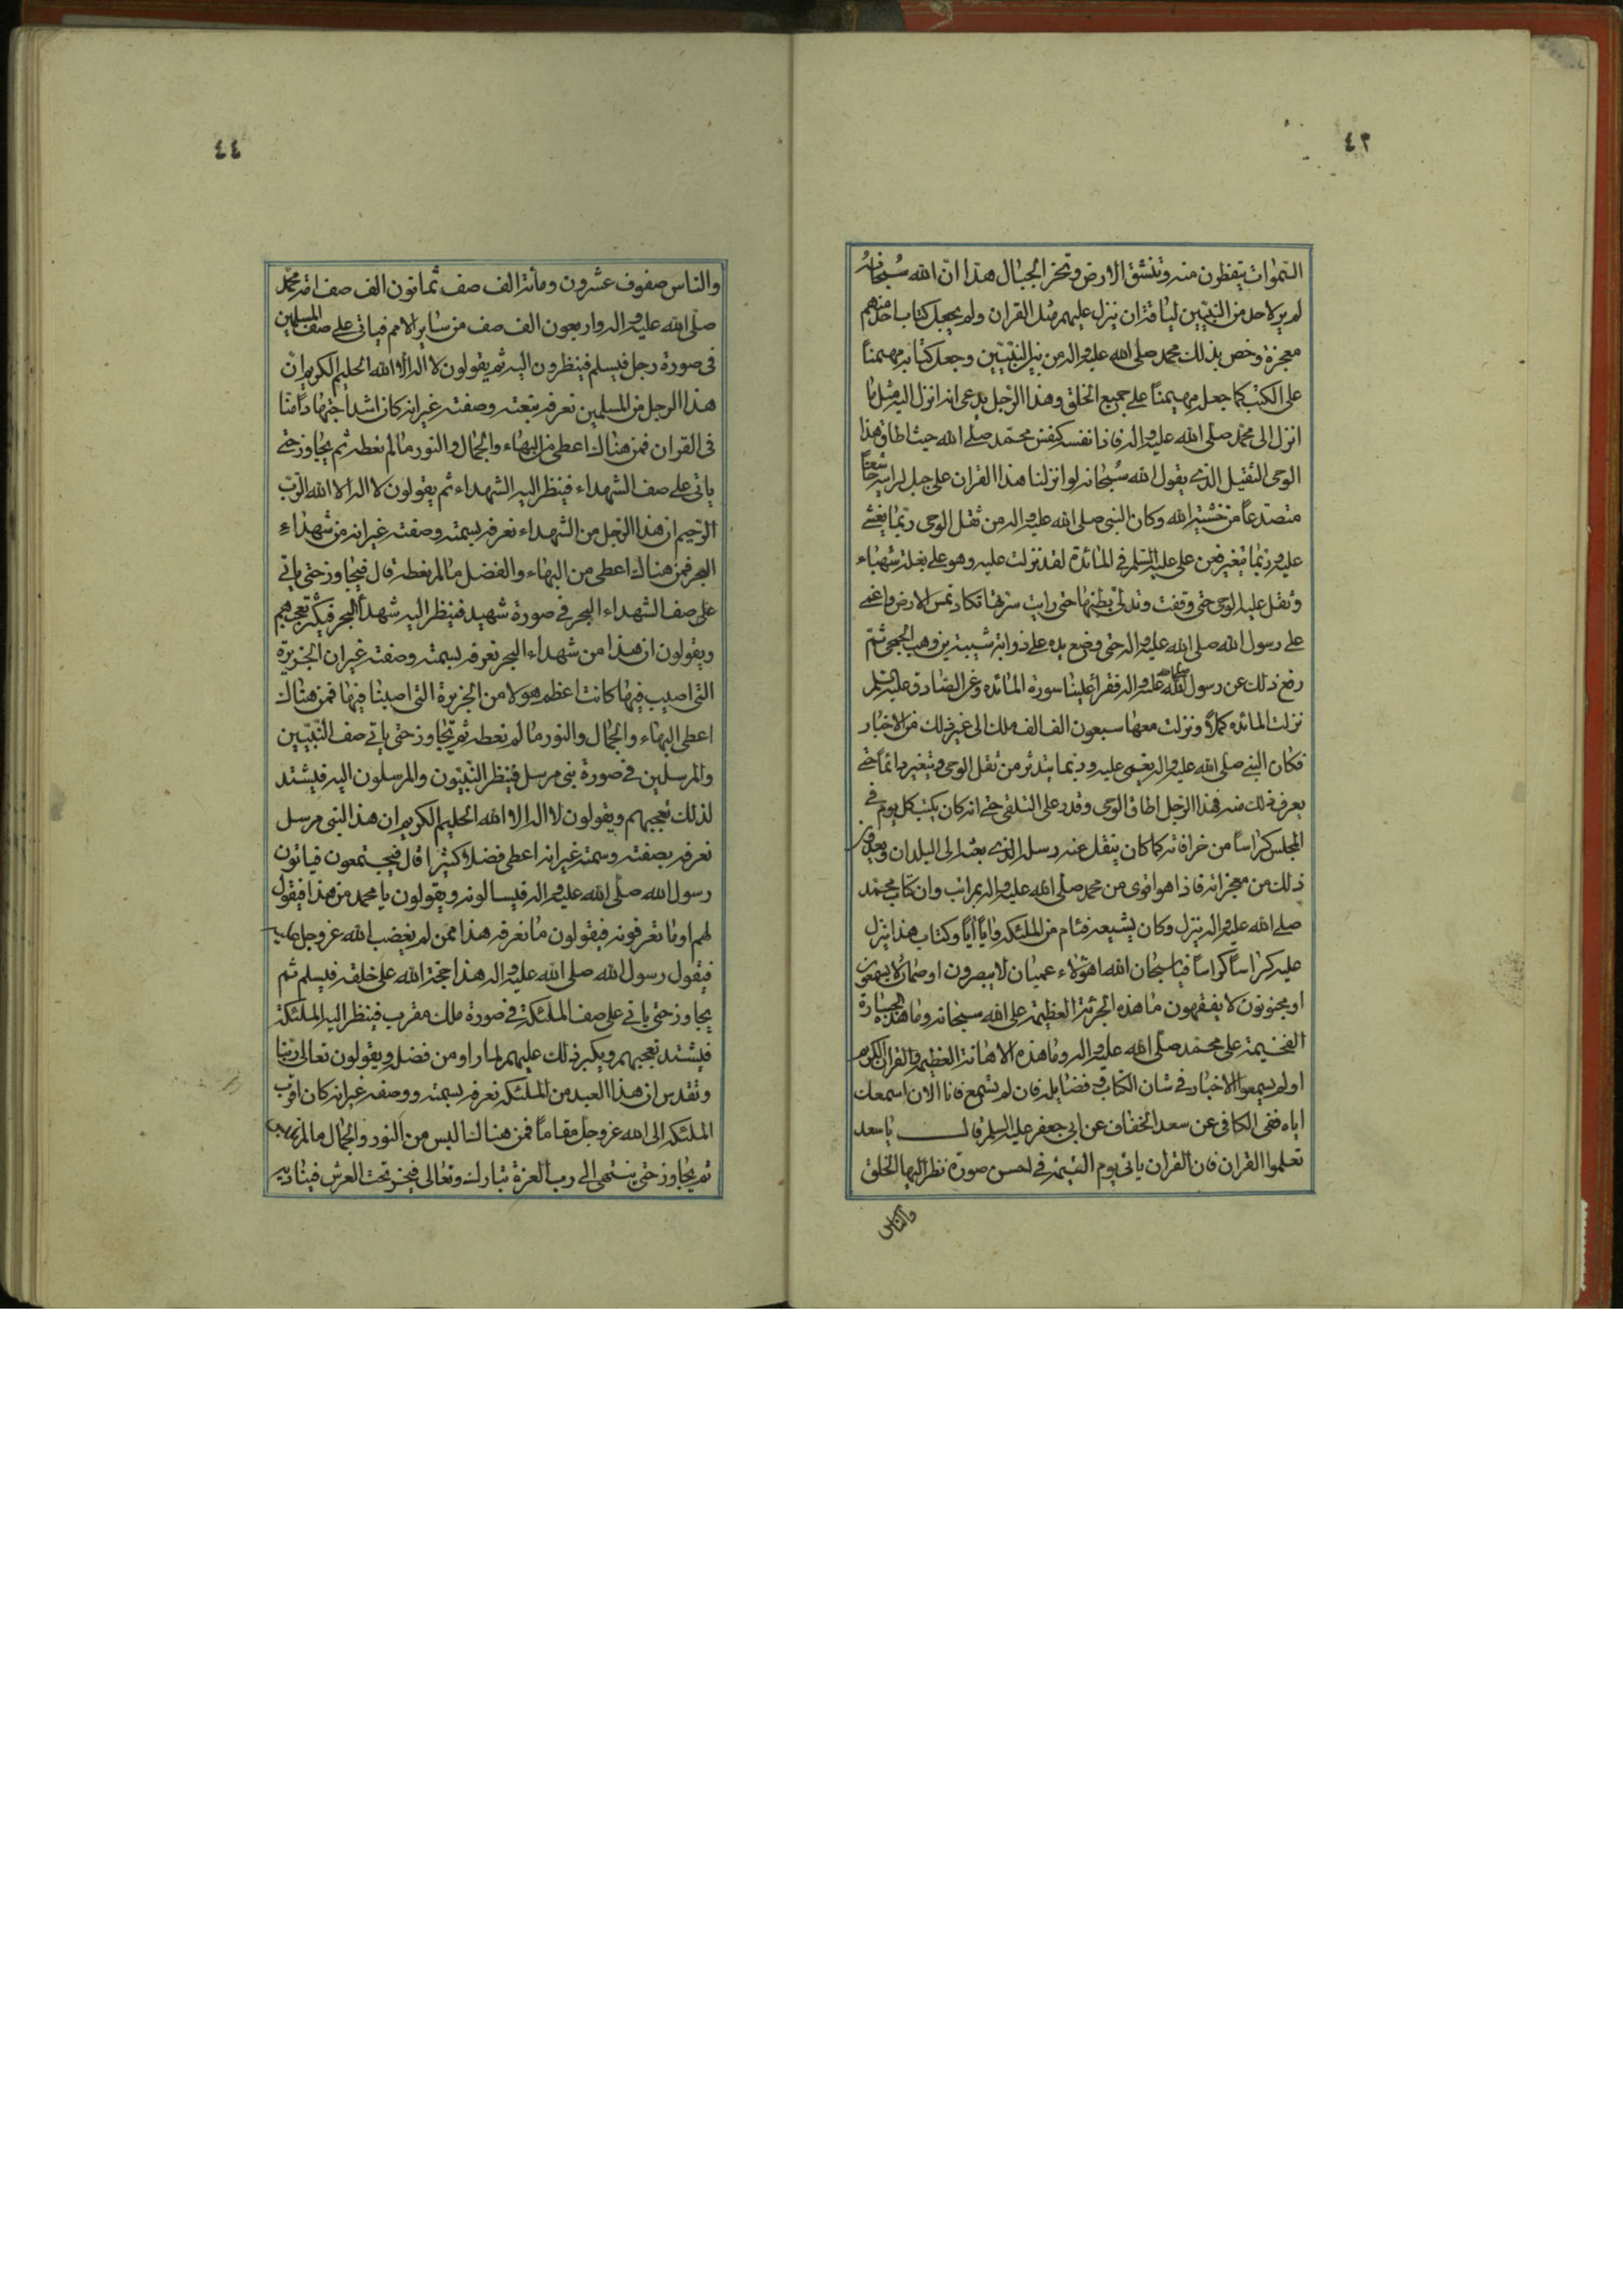 ٤٣
السموات يتفطرون منه وتنشق الارض وتخر الجبال هذا ان الله سبحانه
لم ير لاحد من النبيين لياقة ان ينزل عليهم مثل القران ولم يجعل كتاب احد منهم
معجزة وخص بذلك محمد صلى الله عليه واله من بين النبيين وجعل كتابه مهيمنا
على الكتب كما جعله مهيمنا على جميع الخلق وهذا الرجل يدعى انه انزل اليه مثل ما
انزل الى محمد صلى الله عليه واله فاذا نفسه كنفس محمد صلى الله حيث اطاق هذا
الوحى الثقيل الذى يقول الله سبحانه لو انزلنا هذا القران على جبل لرايته خاشعا
متصدعا من خشية الله وكان النبى صلى الله عليه واله من ثقل الوحى ربما يغشى
عليه وربما يتغير فعن على عليه السلم فى المائدة لقد نزلت عليه وهو على بغلة شهباء
وثقل عليه الوحى حتى وقفت وتدلى بطنها حتى رايت سرتها تكاد تمس الارض واغمى
على رسول الله صلى الله عليه واله حتى وضع يده على ذوابة شيبة بن وهب الجمحى ثم
رفع ذلك عن رسول الله صلى الله عليه واله فقرأ علينا سورة المائده وعن الصادق عليه السلم
نزلت المائده كملا ونزلت معها سبعون الف الف ملك الى غير ذلك من الاخبار
فكان النبى صلى الله عليه واله يغمى عليه وربما يتدثر من ثقل الوحى ويتغير دائما حتى
يعرف ذلك منه فهذا الرجل اطاق الوحى وقدر على التلقى حتى انه كان يكتب كل يوم فى
المجلس كراسا من خرافاته كما كان ينقل عنه رسله الذى بعثه الى البلدان ويعدون
ذلك من معجزاته فاذا هو اقوى من محمد صلى الله عليه واله بمراتب وان كتاب محمد
صلى الله عليه واله ينزل وكان يشيعه فئام من الملئكه وايا ايا وكتاب هذا ينزل
عليه كراسا كراسا فيا سبحان الله اهؤلاء عميان لا يبصرون او صمان لا يسمعون
او مجنونون لا يفقهون ما هذه الجرئة العظيمة على الله سبحانه وما هذه الجسارة
الفخيمة على محمد صلى الله عليه واله وما هذه الاهانة العظيمة بالقران الكريم
اولم يسمعوا الاخبار فى شان الكتاب وفضايله فان لم تسمع فانا الان اسمعك
اياه ففى الكافى عن سعد الخفاف عن ابى جعفر عليه السلم قال يا سعد
تعلموا القران فان القران ياتى يوم القيمة فى احسن صورة نظر اليها الخلق
والناس
٤٤
والناس صفوف عشرون ومائة الف صف ثمانون الف صف امة محمد
صلى الله عليه واله واربعون الف صف من ساير الامم فياتى على صف المسلمين
فى صورة رجل فيسلم فينظرون اليه ثم يقولون لا اله الا الله الحليم الكريم ان
هذا الرجل من المسلمين نعرفه بنعته وصفته غير انه كان اشد اجتهادا منا
فى القران فمن هناك اعطى من البهاء والجمال والنور ما لم نعطه ثم يجاوز حتى
ياتى على صف الشهداء فينظر اليه الشهداء ثم يقولون لا اله الا الله الرب
الرحيم ان هذا الرجل من الشهداء نعرفه بسمته وصفته غير انه من شهداء
البحر فمن هناك اعطى من البهاء والفضل ما لم نعطه قال فيجاوز حتى ياتى
على صف الشهداء البحر فى صورة شهيد فينظر اليه شهداء البحر فيكثر تعجبهم
ويقولون ان هذا من شهداء البحر نعرفه بسمته وصفته غير ان الجزيرة
التى اصيب فيها كانت اعظم هولا من الجزيرة التى اصبنا فيها فمن هناك
اعطى البهاء والجمال والنور ما لم نعطه ثم يجاوز حتى ياتى صف النبيين
والمرسلين فى صورة نبى مرسل فينظر النبيون والمرسلون اليه فيشتد
لذلك تعجبهم ويقولون لا اله الا الله الحليم الكريم ان هذا النبى مرسل
نعرفه بصفته وسمته غير انه اعطى فضلا كثيرا قال فيجتمعون فياتون
رسول الله صلى الله عليه واله فيسالونه ويقولون يا محمد من هذا فيقول
لهم اوما تعرفونه فيقولون ما نعرفه هذا ممن لم يغضب الله عز وجل عليه
فيقول رسول الله صلى الله عليه واله هذا حجة الله على خلقه فيسلم ثم
يجاوز حتى ياتى على صف الملئكة فى صورة ملك مقرب فينظر اليه الملئكة
فيشتد تعجبهم ويكبر ذلك عليهم لما راوا من فضله ويقولون تعالى ربنا
وتقدس ان هذا العبد من الملئكه نعرفه بسمته ووصفه غير انه كان اقرب
الملئكه الى الله عز وجل مقاما فمن هناك البس من النور والجمال ما لم نلبس
ثم يجاوز حتى ينتهى الى رب العزة تبارك وتعالى فيخر تحت العرش فيناديه